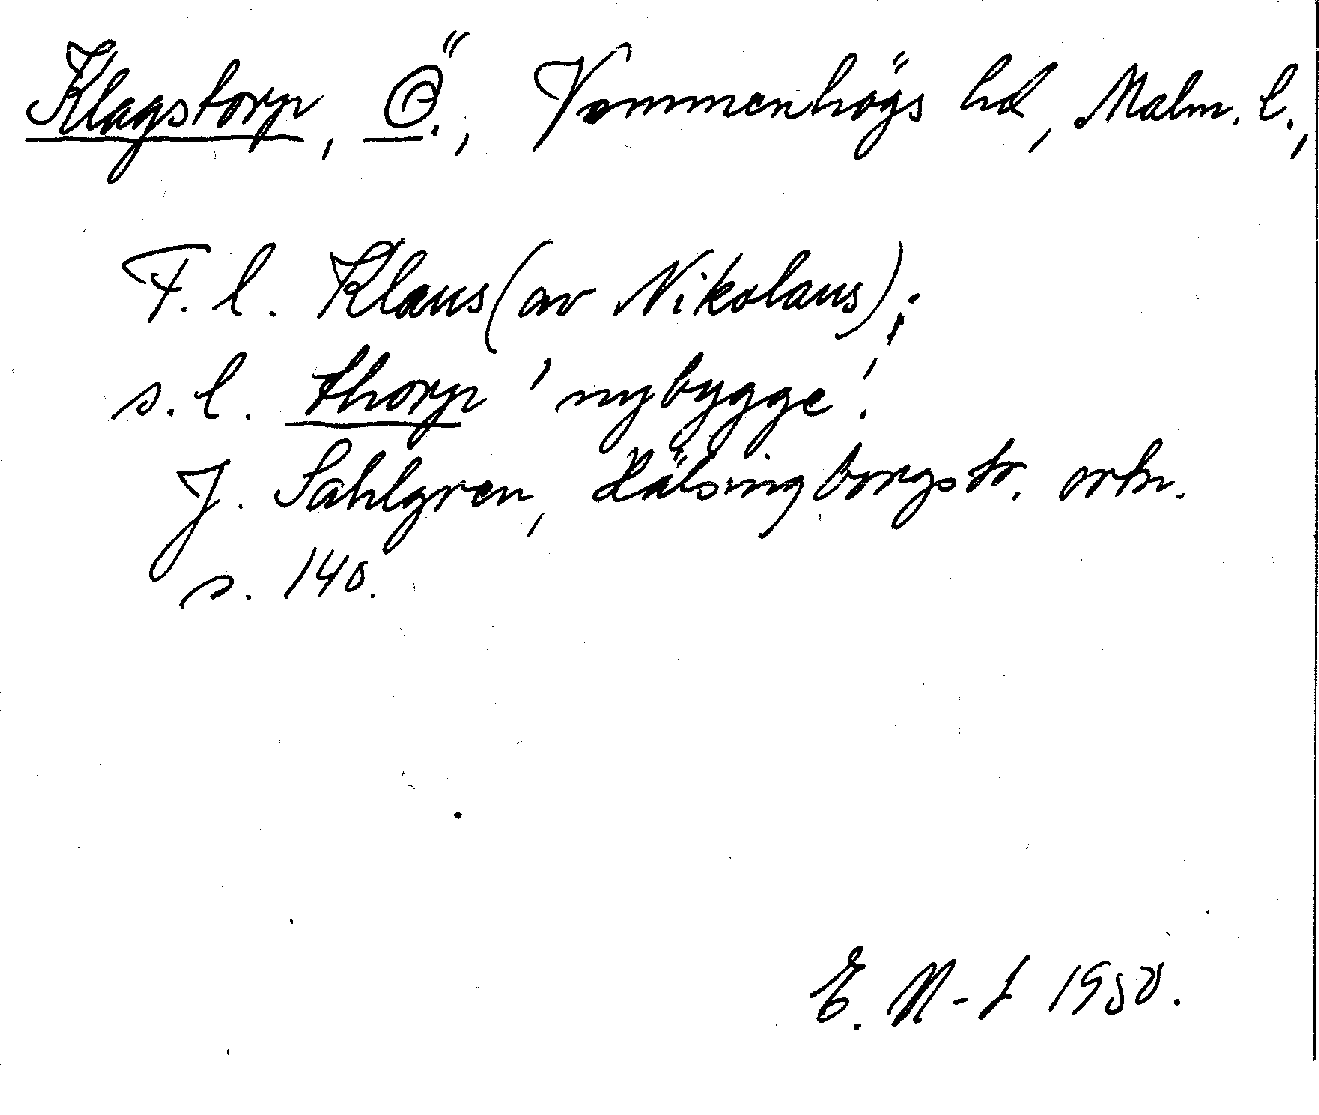 Klagstorp, Ö., Vemmenhögs hd, Malm. l.,
F. l. Klaus (av Nikolaus);
s. l. thorp 'nybygge'.
J. Sahlgren, Hälsingborgstr. ortn.
s. 140.
E. N-t 1950.